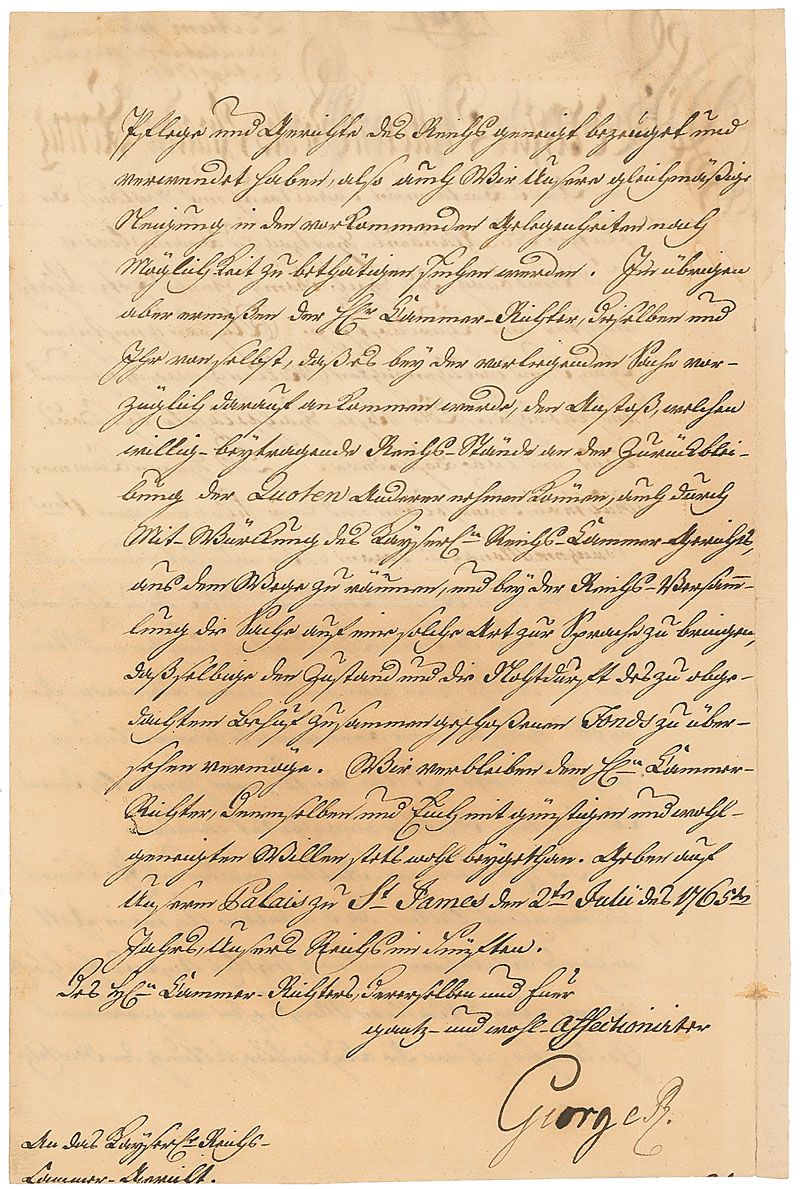 Pflege und Gerichte des Reichs geneigt bezeuget und
verwendet haben, also auch Wir Unsere gleichmäßige
Neigung in den vorkommenden Gelegenheiten nach
Möglichkeit zu bethätigen suchen werden. Im übrigen
aber ermeßen der H. Cammer-Richter, dieselben und
Ihr von selbst, daß es bey der vorliegenden Sache vor-
züglich darauf ankommen werde, den Anstoß, welchen
willig-beytragende Reichs-Stände an der Zurückblei-
bung der Quoten Anderer nehmen können, auch durch
Mit-Würckung des Kayserl. Reichs-Cammer-Gerichts,
aus dem Wege zu räumen, und bey der Reichs-Versamm-
lung die Sache auf eine solche Art zur Sprache zu bringen,
daß selbige den Zustand und die Nohtdurft des zu obge-
dachtem Behuf zusammengeschoßenen Fonds zu über-
sehen vermöge. Wir verbleiben dem H. Cammer-
Richter, Denenselben und Euch mit günstigen und wohl-
geneigten Willen stets wohl beygethan. Geben auf
Unserm Palais zu St James den 2ten Julii des 1765ten
Jahrs, Unsers Reichs im Fünften.
Des H. Cammer-Richters, dererselben und Euer
gantz- und wohl-affectionirter
George R.
An das Kayserl. Reichs-
Cammer-Gericht.